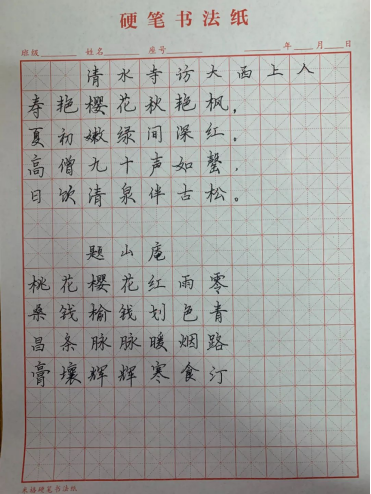 硬笔书法纸
班级 姓名 座号 年 月 日
清水寺访大西上人
寿艳樱花秋艳枫，
夏初嫩绿间深红。
高僧九十声如磬，
日饮清泉伴古松。
题山庵
桃花樱花红雨零
桑钱榆钱划色青
昌条脉脉暖烟路
膏壤辉辉寒食汀
米骑硬笔书法纸